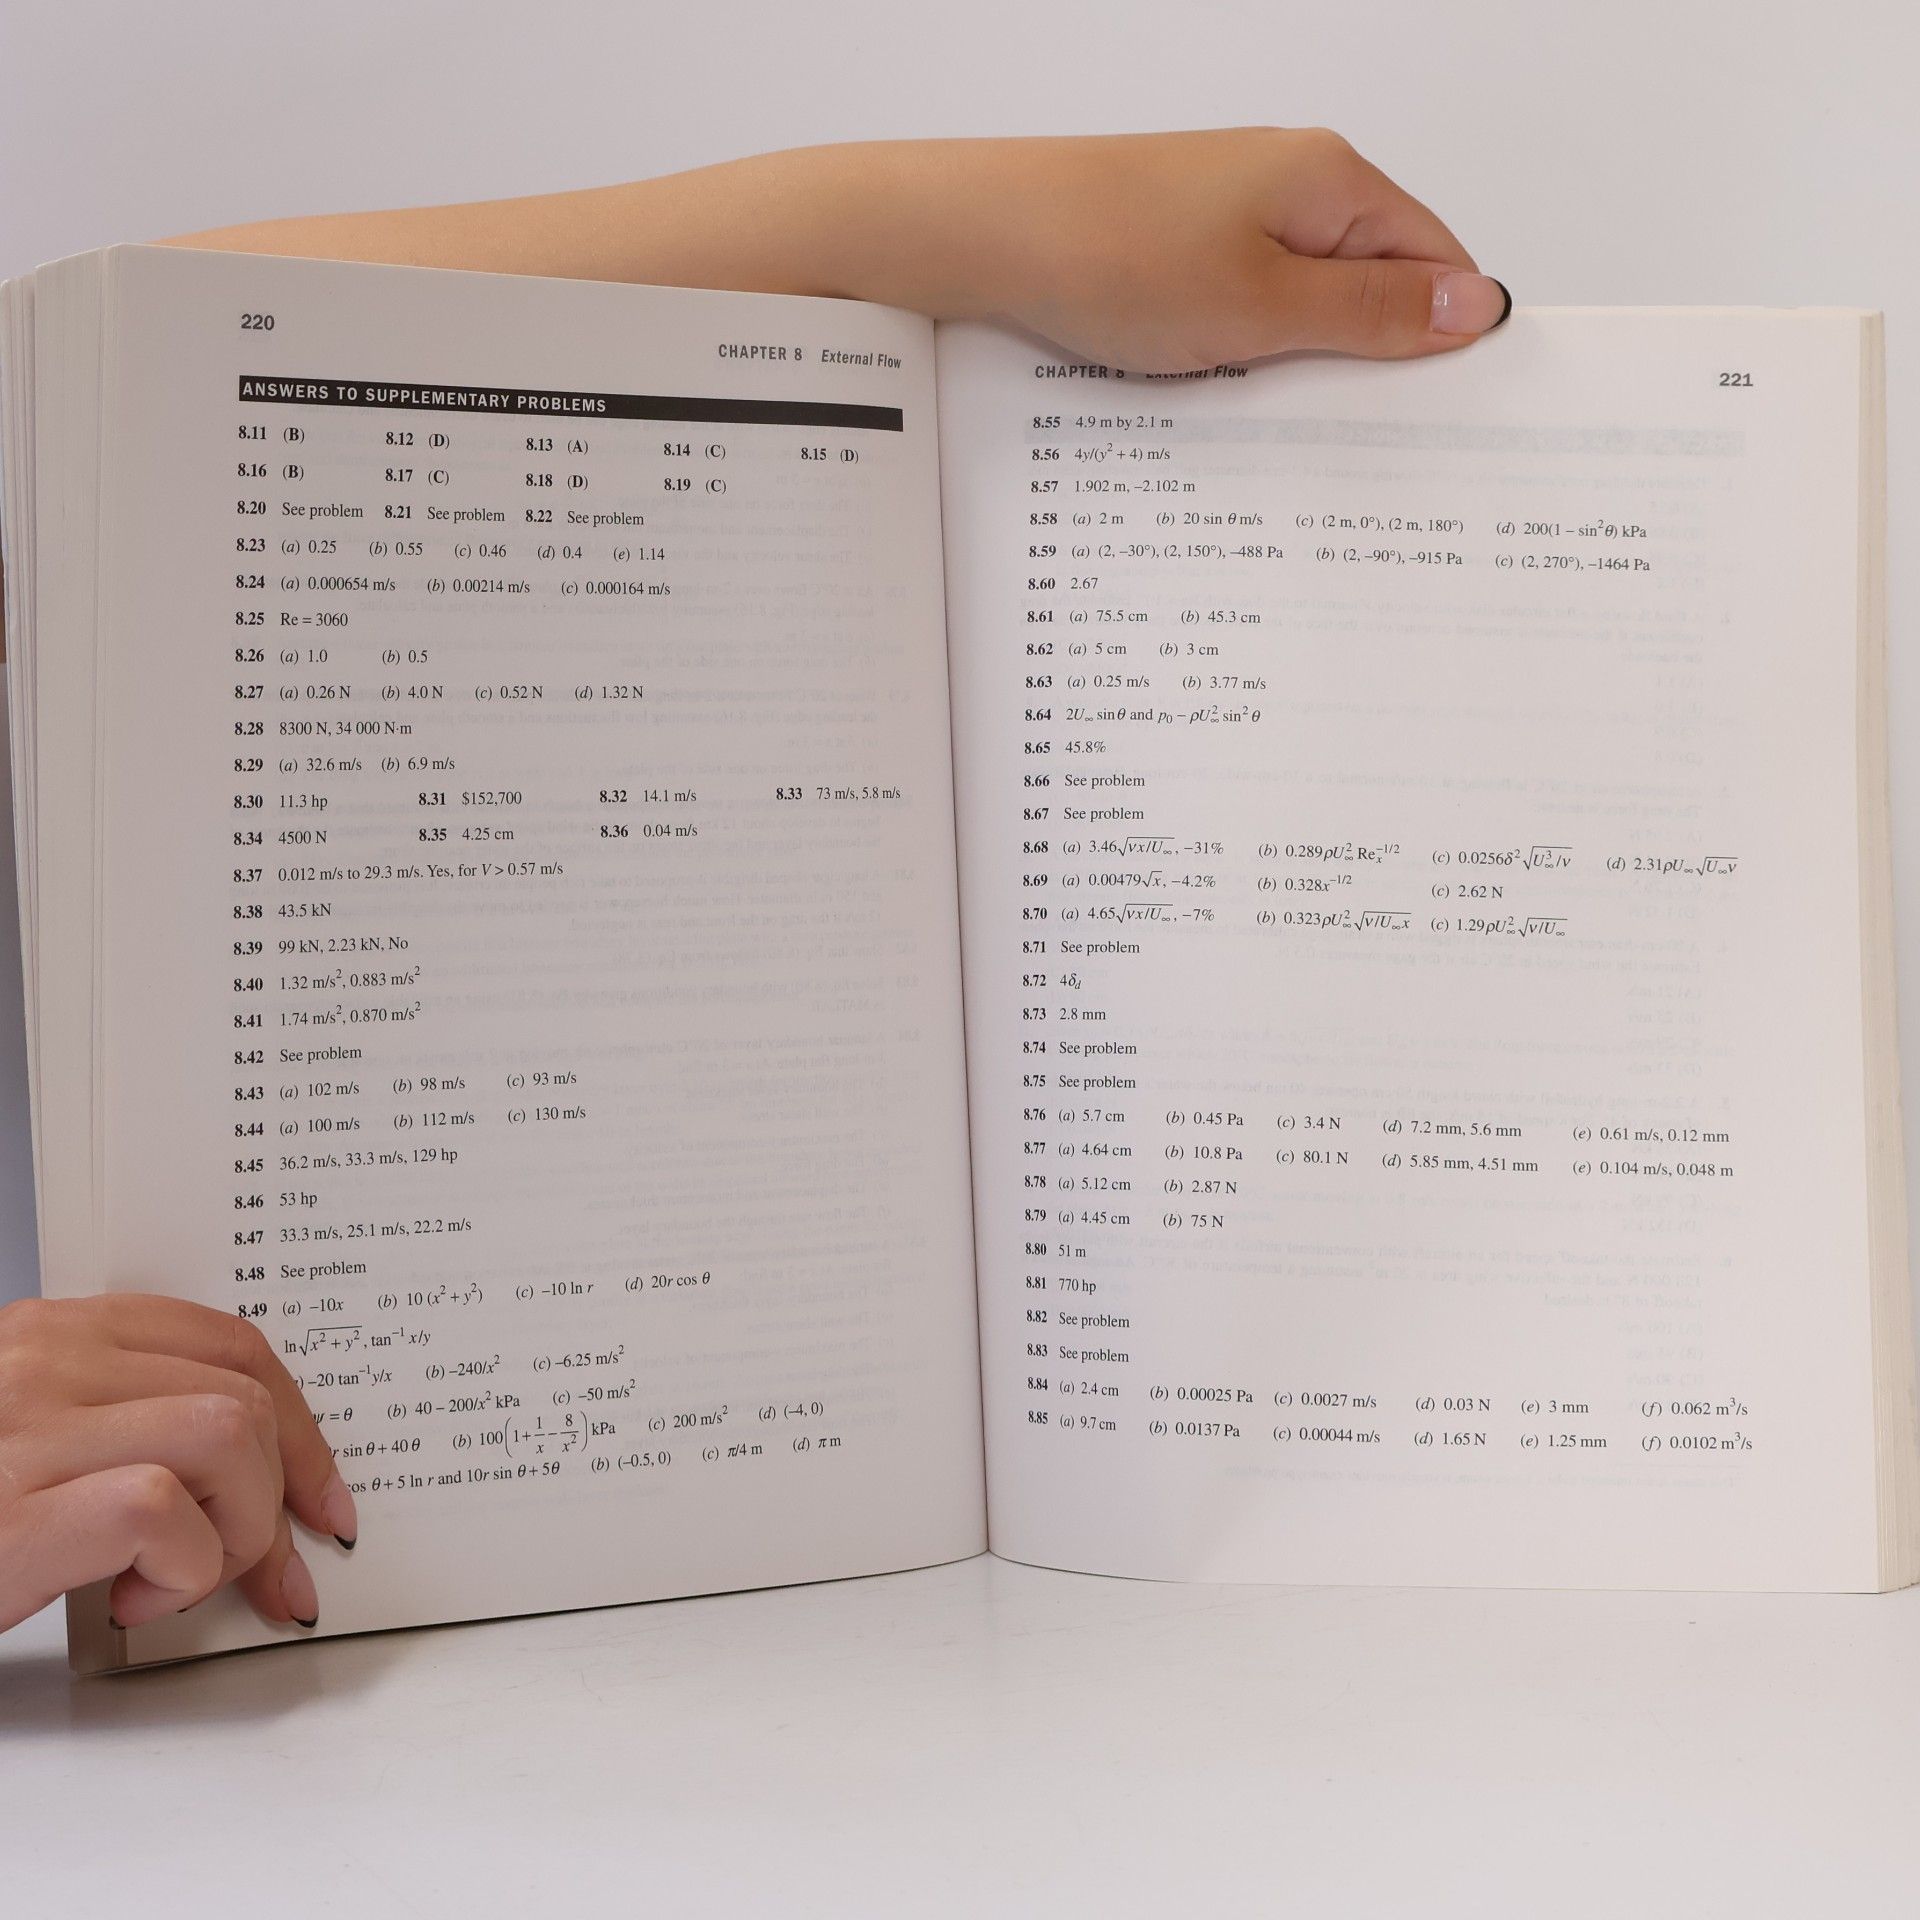 220
CHAPTER 8 External Flow
ANSWERS TO SUPPLEMENTARY PROBLEMS
8.11 (B) 8.12 (D) 8.13 (A) 8.14 (C) 8.15 (D)
8.16 (B) 8.17 (C) 8.18 (D) 8.19 (C)
8.20 See problem 8.21 See problem 8.22 See problem
8.23 (a) 0.25 (b) 0.55 (c) 0.46 (d) 0.4 (e) 1.14
8.24 (a) 0.000654 m/s (b) 0.00214 m/s (c) 0.000164 m/s
8.25 Re = 3060
8.26 (a) 1.0 (b) 0.5
8.27 (a) 0.26 N (b) 4.0 N (c) 0.52 N (d) 1.32 N
8.28 8300 N, 34 000 N·m
8.29 (a) 32.6 m/s (b) 6.9 m/s
8.30 11.3 hp 8.31 $152,700 8.32 14.1 m/s 8.33 73 m/s, 5.8 m/s
8.34 4500 N 8.35 4.25 cm 8.36 0.04 m/s
8.37 0.012 m/s to 29.3 m/s. Yes, for V > 0.57 m/s
8.38 43.5 kN
8.39 99 kN, 2.23 kN, No
8.40 1.32 m/s², 0.883 m/s²
8.41 1.74 m/s², 0.870 m/s²
8.42 See problem
8.43 (a) 102 m/s (b) 98 m/s (c) 93 m/s
8.44 (a) 100 m/s (b) 112 m/s (c) 130 m/s
8.45 36.2 m/s, 33.3 m/s, 129 hp
8.46 53 hp
8.47 33.3 m/s, 25.1 m/s, 22.2 m/s
8.48 See problem
8.49 (a) –10x (b) 10 (x² + y²) (c) –10 ln r (d) 20r cos θ
ln√(x² + y²), tan⁻¹ x/y
–20 tan⁻¹y/x (b) –240/x² (c) –6.25 m/s²
ψ = θ (b) 40 – 200/x² kPa (c) –50 m/s²
r sin θ + 40 θ (b) 100(1 + 1/x – 8/x²) kPa (c) 200 m/s² (d) (–4, 0)
cos θ + 5 ln r and 10r sin θ + 5θ (b) (–0.5, 0) (c) π/4 m (d) π m
CHAPTER 8 External Flow
221
8.55 4.9 m by 2.1 m
8.56 4y/(y² + 4) m/s
8.57 1.902 m, –2.102 m
8.58 (a) 2 m (b) 20 sin θ m/s (c) (2 m, 0°), (2 m, 180°) (d) 200(1 – sin²θ) kPa
8.59 (a) (2, –30°), (2, 150°), –488 Pa (b) (2, –90°), –915 Pa (c) (2, 270°), –1464 Pa
8.60 2.67
8.61 (a) 75.5 cm (b) 45.3 cm
8.62 (a) 5 cm (b) 3 cm
8.63 (a) 0.25 m/s (b) 3.77 m/s
8.64 2U∞ sin θ and p₀ – ρU∞² sin² θ
8.65 45.8%
8.66 See problem
8.67 See problem
8.68 (a) 3.46√(νx/U∞), –31% (b) 0.289ρU∞² Reₓ^–1/2 (c) 0.0256δ²√(U∞³/ν) (d) 2.31ρU∞√(U∞ν)
8.69 (a) 0.00479√x, –4.2% (b) 0.328x^–1/2 (c) 2.62 N
8.70 (a) 4.65√(νx/U∞), –7% (b) 0.323ρU∞²√(ν/U∞x) (c) 1.29ρU∞²√(ν/U∞)
8.71 See problem
8.72 4δd
8.73 2.8 mm
8.74 See problem
8.75 See problem
8.76 (a) 5.7 cm (b) 0.45 Pa (c) 3.4 N (d) 7.2 mm, 5.6 mm (e) 0.61 m/s, 0.12 mm
8.77 (a) 4.64 cm (b) 10.8 Pa (c) 80.1 N (d) 5.85 mm, 4.51 mm (e) 0.104 m/s, 0.048 m
8.78 (a) 5.12 cm (b) 2.87 N
8.79 (a) 4.45 cm (b) 75 N
8.80 51 m
8.81 770 hp
8.82 See problem
8.83 See problem
8.84 (a) 2.4 cm (b) 0.00025 Pa (c) 0.0027 m/s (d) 0.03 N (e) 3 mm (f) 0.062 m³/s
8.85 (a) 9.7 cm (b) 0.0137 Pa (c) 0.00044 m/s (d) 1.65 N (e) 1.25 mm (f) 0.0102 m³/s